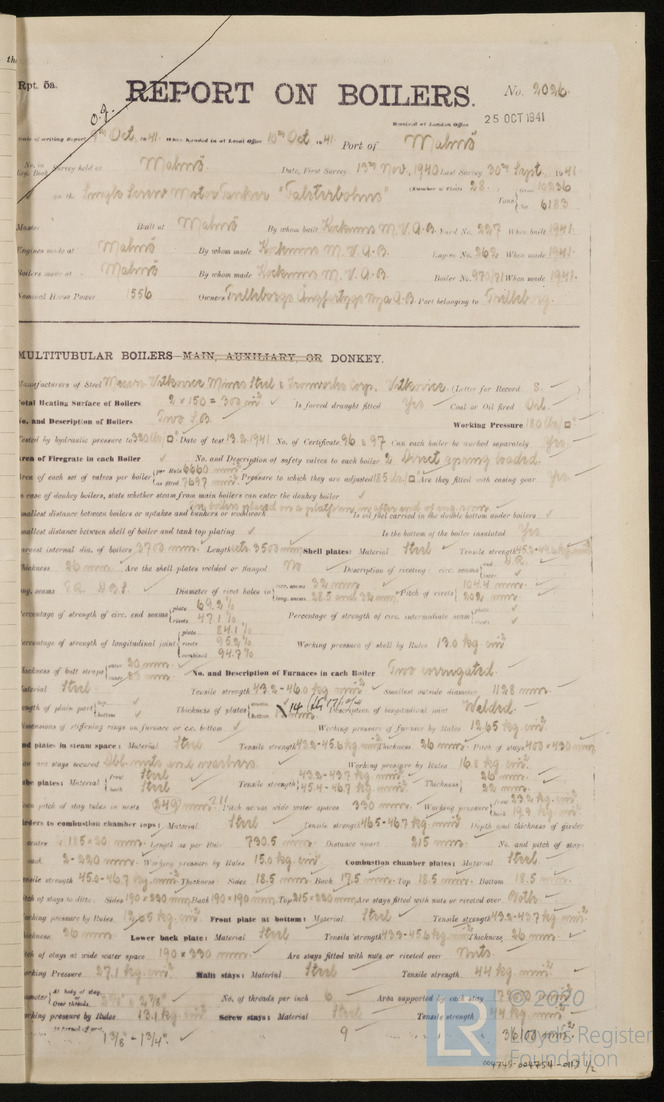 Rpt. 5a.
REPORT ON BOILERS.
No. 2026
Received at London Office
25 OCT 1941
9th Oct. 1941 When handed in at Local Office 10th Oct. 1941 Port of Malmö
Survey held at Malmö Date, First Survey 13th Nov. 1940 Last Survey 30th Sept. 1941
on the Single Screw Motor Tanker "Falsterbohus" 28 10236
Tons 6183
Master Built at Malmö By whom built Kockums M.V.A.B. Yard No. 227 When built 1941
Engines made at Malmö By whom made Kockums M.V.A.B. Engine No. 262 When made 1941
Boilers made at Malmö By whom made Kockums M.V.A.B. Boiler No. 970/71 When made 1941
Nominal Horse Power 1556 Owners Trelleborgs Ångfartygs Nya A.B. Port belonging to Trelleborg
MULTITUBULAR BOILERS MAIN, AUXILIARY, OR DONKEY.
Manufacturers of Steel Messrs Vitkovice Mines Steel & Ironworks Corp. Vitkovice (Letter for Record S.
Total Heating Surface of Boilers 2 × 150 = 300 m² Is forced draught fitted Yes Coal or Oil fired Oil
No. and Description of Boilers Two S.B. Working Pressure 180 lbs/□"
Tested by hydraulic pressure to 320 lbs/□" Date of test 13.2.1941 No. of Certificate 96 & 97 Can each boiler be worked separately Yes
Area of Firegrate in each Boiler No. and Description of safety valves to each boiler 2 Direct spring loaded
Area of each set of valves per boiler per Rule 6660 mm² as fitted 7697 mm² Pressure to which they are adjusted 185 lbs/□" Are they fitted with easing gear Yes
In case of donkey boilers, state whether steam from main boilers can enter the donkey boiler
Smallest distance between boilers or uptakes and bunkers or woodwork Is oil fuel carried in the double bottom under boilers
Smallest distance between shell of boiler and tank top plating Is the bottom of the boiler insulated Yes
Largest internal dia. of boilers 3703 mm Length 3503 mm Shell plates: Material Steel Tensile strength
Thickness 26 mm Are the shell plates welded or flanged No Description of riveting: circ. seams
long. seams Diameter of rivet holes in circ. seams 32 mm long. seams 28.5 and 32 mm Pitch of rivets 104.4 mm 202 mm
Percentage of strength of circ. end seams plate 69.2% rivets 47.1% Percentage of strength of circ. intermediate seam
Percentage of strength of longitudinal joint plate 84.1% rivets 95.2% combined 94.7% Working pressure of shell by Rules 13.0 kg. cm²
Thickness of butt straps outer 20 mm inner 23 mm No. and Description of Furnaces in each Boiler Two corrugated
Material Steel Tensile strength 43.2-46.0 kg mm² Smallest outside diameter 1128 mm
Length of plain part Thickness of plates Description of longitudinal joint Welded
Dimensions of stiffening rings on furnace or c.c. bottom Working pressure of furnace by Rules 12.65 kg. cm²
End plates in steam space: Material Steel Tensile strength 43.2-45.6 kg mm² Thickness 26 mm Pitch of stays 403 × 430 mm
How are stays secured Dbl. nuts and washers Working pressure by Rules
Tube plates: Material front Steel back Steel Tensile strength 43.2-43.7 kg mm² 45.4-46.7 kg mm² Thickness 26 mm 22 mm
Mean pitch of stay tubes in nests Pitch across wide water spaces 330 mm Working pressure front 23.2 kg. cm² back
Girders to combustion chamber tops: Material Steel Tensile strength 46.5-46.7 kg. mm² Depth and thickness of girder
at centre Length as per Rule 730.5 mm Distance apart 215 mm No. and pitch of stays
in each 2-220 mm Working pressure by Rules 15.0 kg. cm² Combustion chamber plates: Material Steel
Tensile strength 45.0-46.7 kg. mm² Thickness: Sides 18.5 mm Back 17.5 mm Top 18.5 mm Bottom 18.5 mm
Pitch of stays to ditto: Sides 190 × 220 mm Back 190 × 190 mm Top 215 × 220 mm Are stays fitted with nuts or riveted over Both
Working pressure by Rules 12.65 kg. cm² Front plate at bottom: Material Steel Tensile strength 43.2-43.7 kg mm²
Thickness 26 mm Lower back plate: Material Steel Tensile strength 43.3-45.6 kg mm² Thickness 26 mm
Pitch of stays at wide water space 190 × 330 mm Are stays fitted with nuts or riveted over Nuts
Working Pressure 27.1 kg. cm² Main stays: Material Steel Tensile strength 44 kg. mm²
Diameter At body of stay, or Over threads No. of threads per inch 6 Area supported by each stay
Working pressure by Rules 13.1 kg. cm² Screw stays: Material Steel Tensile strength 44 kg. mm²
1 3/8" - 1 3/4" 9 36100 mm²
© 2020
Lloyd's Register
Foundation
LR
004745-004754-0117 1/2